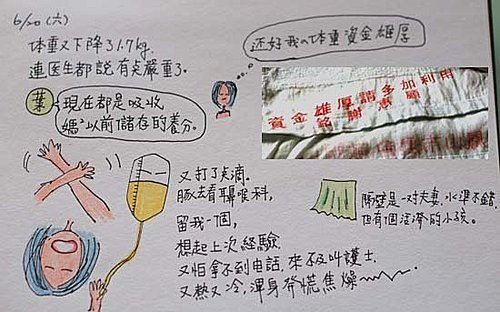 6/20(六)
体重又下降了1.7kg.
連医生都說有点嚴重了.
葉
現在都是吸收
媽ㄟ以前儲存的養分.
还好我ㄟ体重資金雄厚
資金雄厚請多加利用
銘謝惠顧
又打了点滴.
豚去看耳喉科,
留我一個,
想起上次經驗.
又怕拿不到电話, 來不及叫護士.
又熱又冷, 渾身發慌焦燥
隔壁是一对夫妻, 水準不錯.
但有個
的小孩。